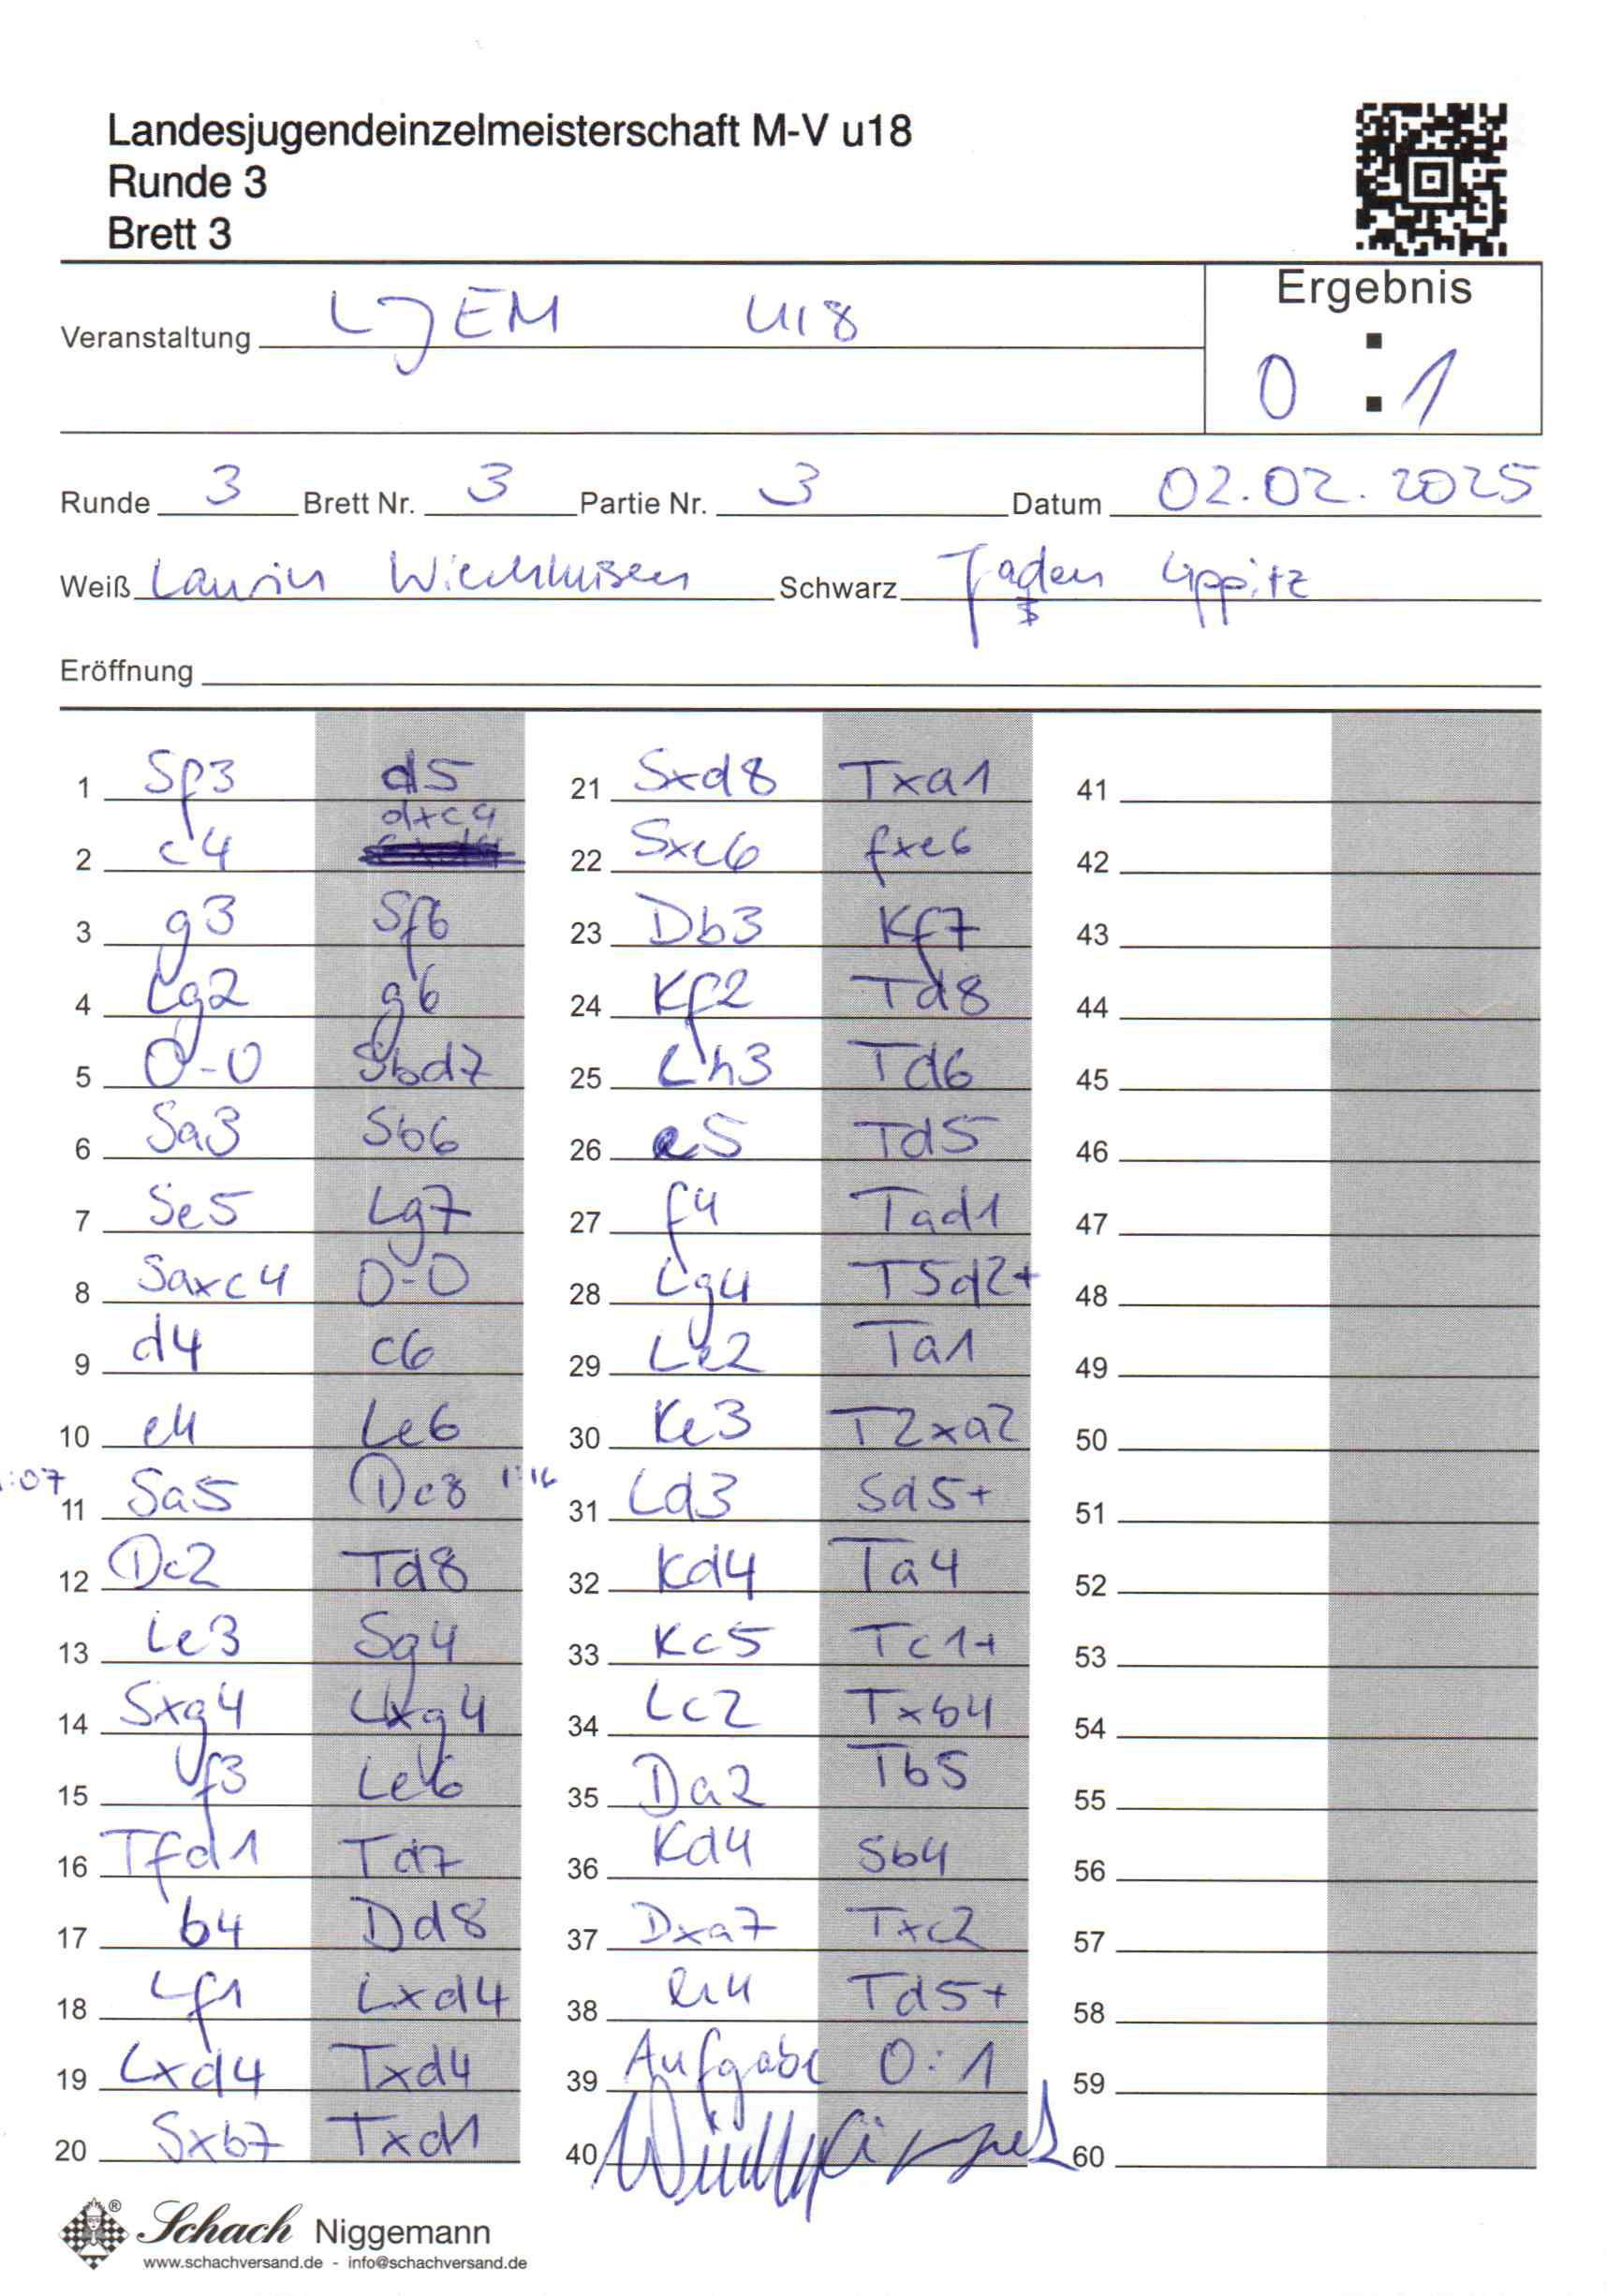 Landesjugendeinzelmeisterschaft M-V u18
Runde 3
Brett 3
Ergebnis
Veranstaltung LJEM U18
0 : 1
Runde 3 Brett Nr. 3 Partie Nr. 3 Datum 02.02.2025
Weiß Laurin Schwarz Jaden Lippitz
Eröffnung
1 Sf3 d5 21 Sxd8 Txa1 41
dxc4
2 c4 22 Sxc6 fxe6 42
3 g3 Sf6 23 Db3 Kf7 43
4 Lg2 g6 24 Kf2 Td8 44
5 0-0 Sbd7 25 Lh3 Td6 45
6 Sa3 Sb6 26 e5 Td5 46
7 Se5 Lg7 27 f4 Tad1 47
8 Saxc4 0-0 28 Lg4 T5d2+ 48
9 d4 c6 29 Le2 Ta1 49
10 e4 Le6 30 Ke3 T2xa2 50
:07 11 Sa5 Dc8 1:16 31 Ld3 Sd5+ 51
12 Dc2 Td8 32 Kd4 Ta4 52
13 Le3 Sg4 33 Kc5 Tc1+ 53
14 Sxg4 Lxg4 34 Lc2 Txb4 54
15 f3 Le6 35 Da2 Tb5 55
16 Tfd1 Td7 36 Kd4 Sb4 56
17 b4 Dd8 37 Dxa7 Txc2 57
18 Lf1 Lxd4 38 Td5+ 58
19 Lxd4 Txd4 39 Aufgabe 0:1 59
20 Sxb7 Txd1 40 60
Schach Niggemann
www.schachversand.de - info@schachversand.de